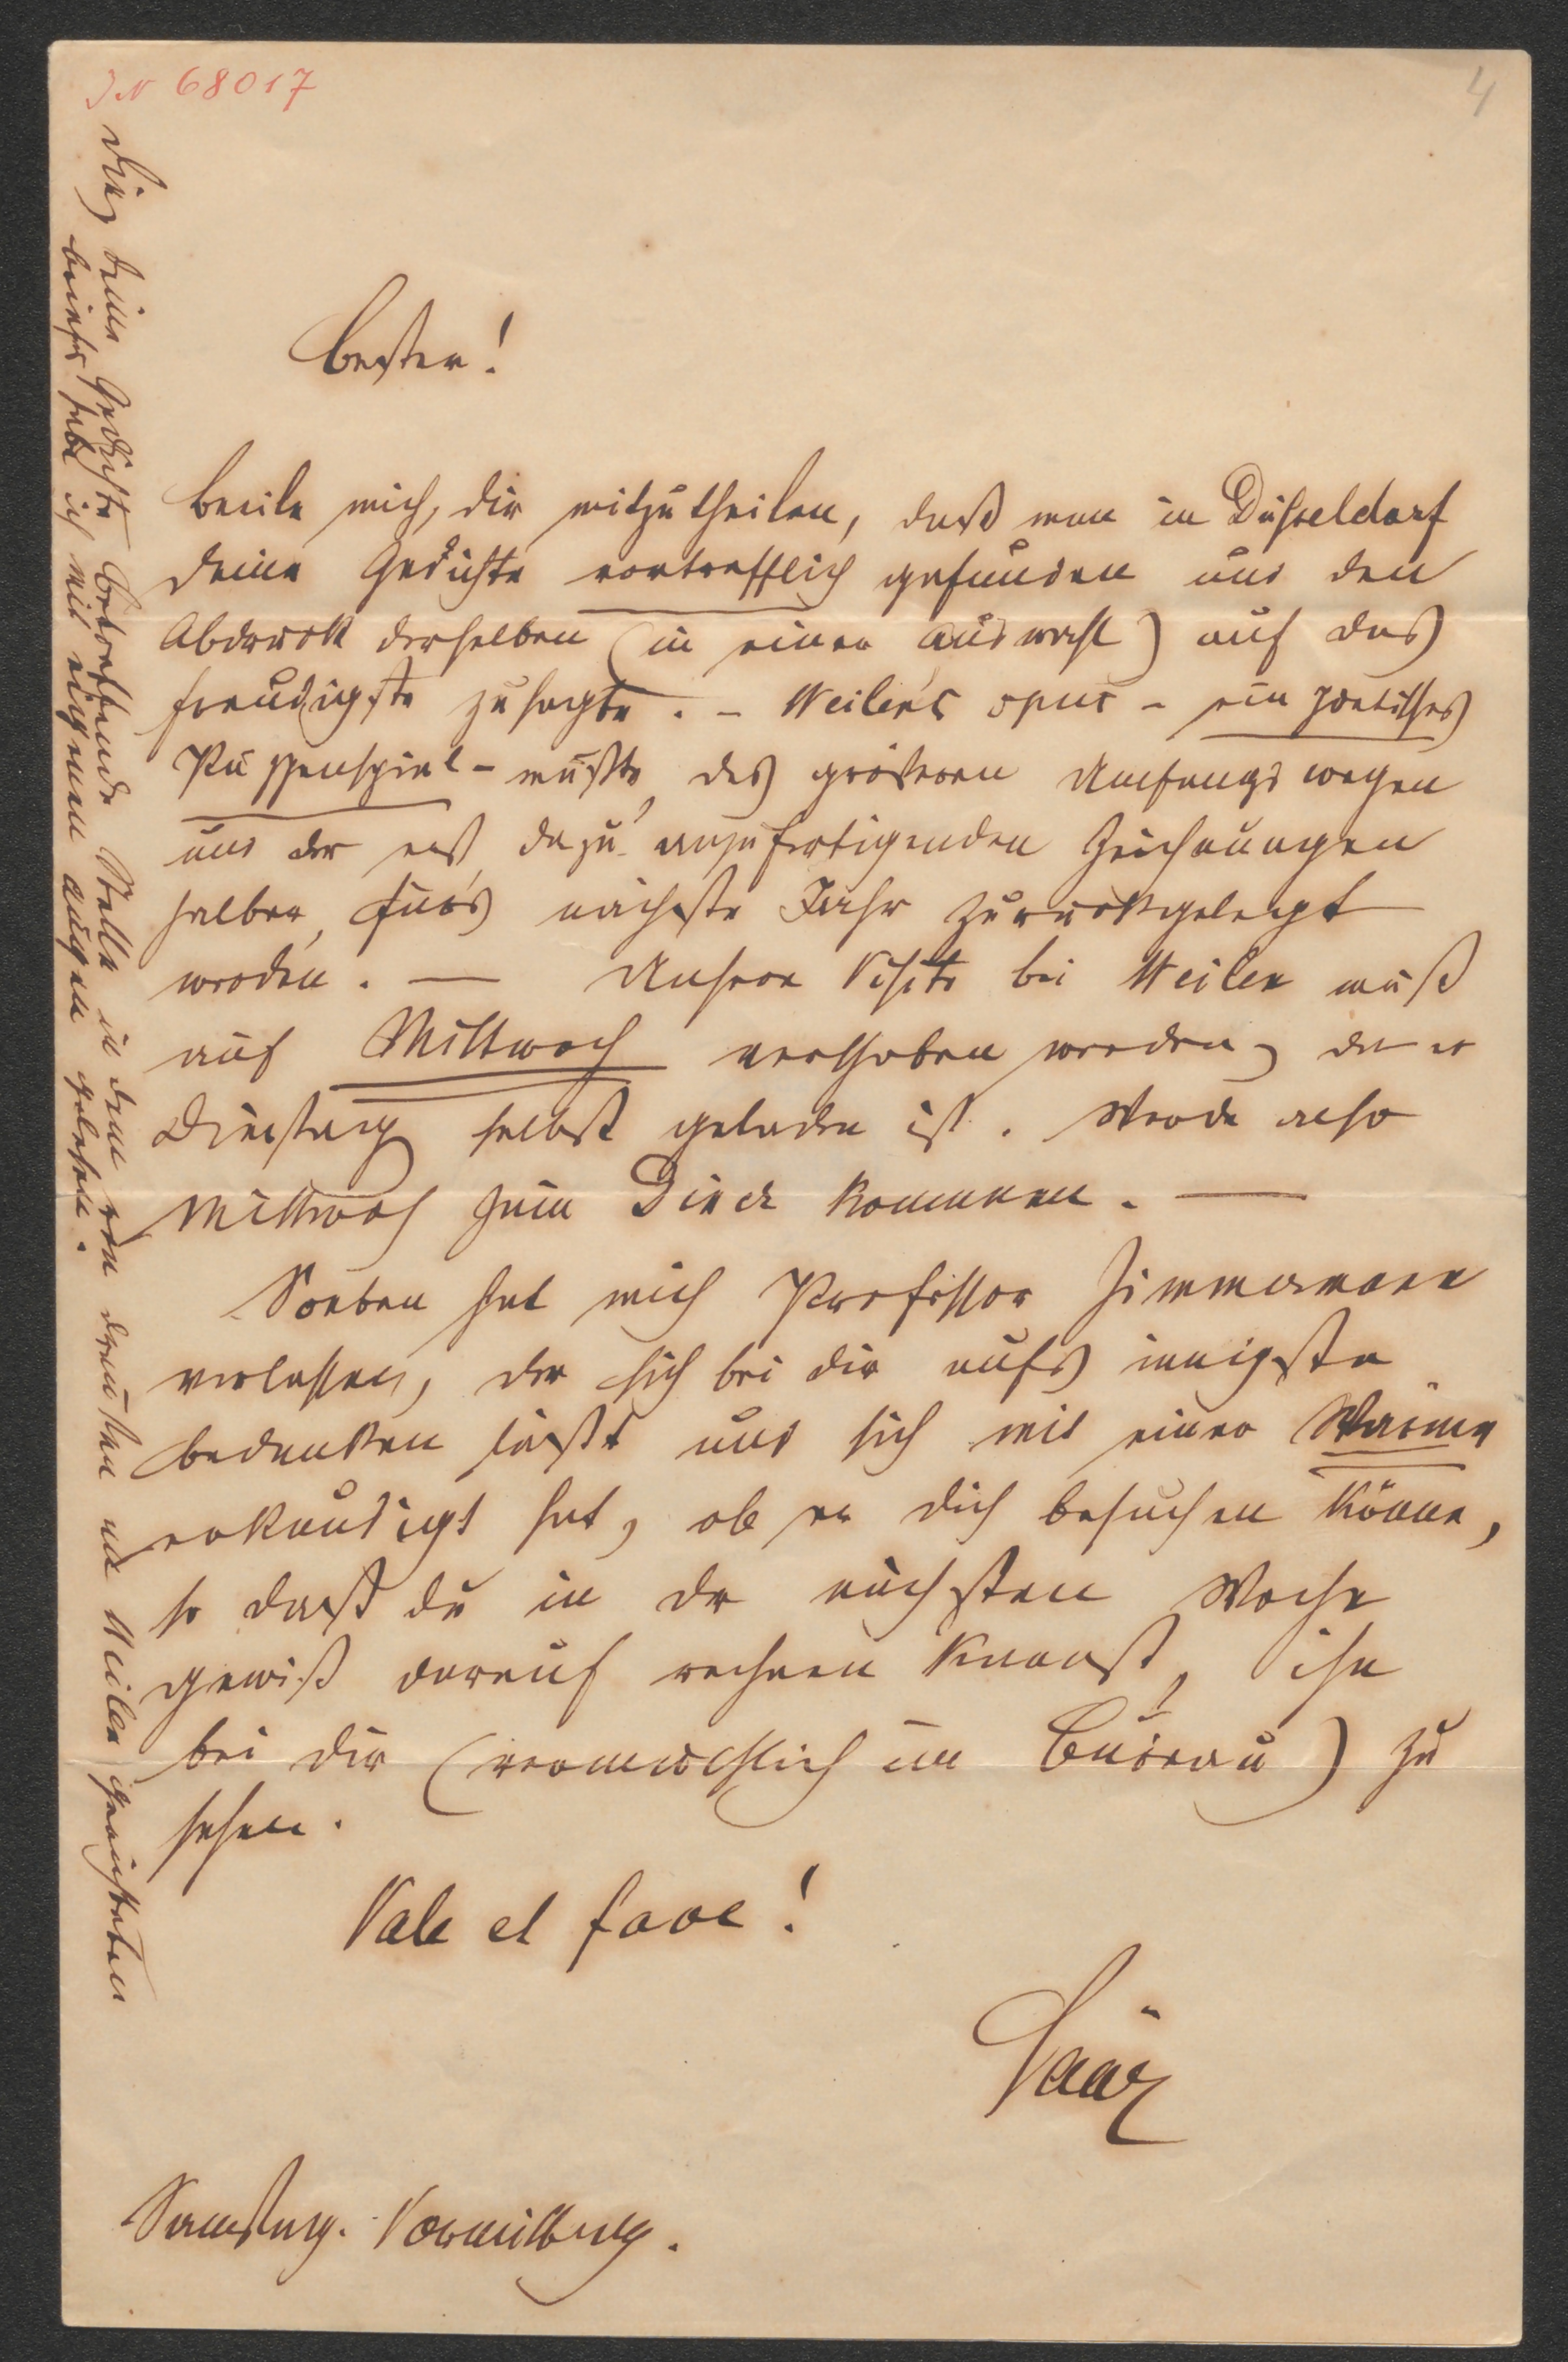 IN 68017
4
Bester!
Beeile mich, dir mitzutheilen, daß man in Düsseldorf
deine Gedichte vortrefflich gefunden und den
Abdruck derselben (in einer Auswahl) auf das
freudigste zusagte. – Weilen's opus – ein poetisches
Puppenspiel – mußte, des größeren Umfangs wegen
und der erst dazu anzufertigenden Zeichnungen
halber, für's nächste Jahr zurückgelegt
werden. — Unsere Visite bei Weilen muß
auf Mittwoch verschoben werden, da er
Dienstag selbst geladen ist. Werde also
Mittwoch zum kommen. —
Soeben hat mich Professor Zimmermann
verlassen, der sich bei dir aufs innigste
bedanken läßt und sich mit einer Wärme
erkundigt hat, ob er dich besuchen könne,
so daß du in der nächsten Woche
gewiß darauf rechnen kannst, ihn
bei dir (vermuthlich im Bureau) zu
sehen.
Vale et fave!
Saar
Samstag. Vormittag.
Die deine Gedichte betreffende Stelle in dem von draußen an Weilen gerichteten
Briefe habe ich mit eigenen Augen gelesen.